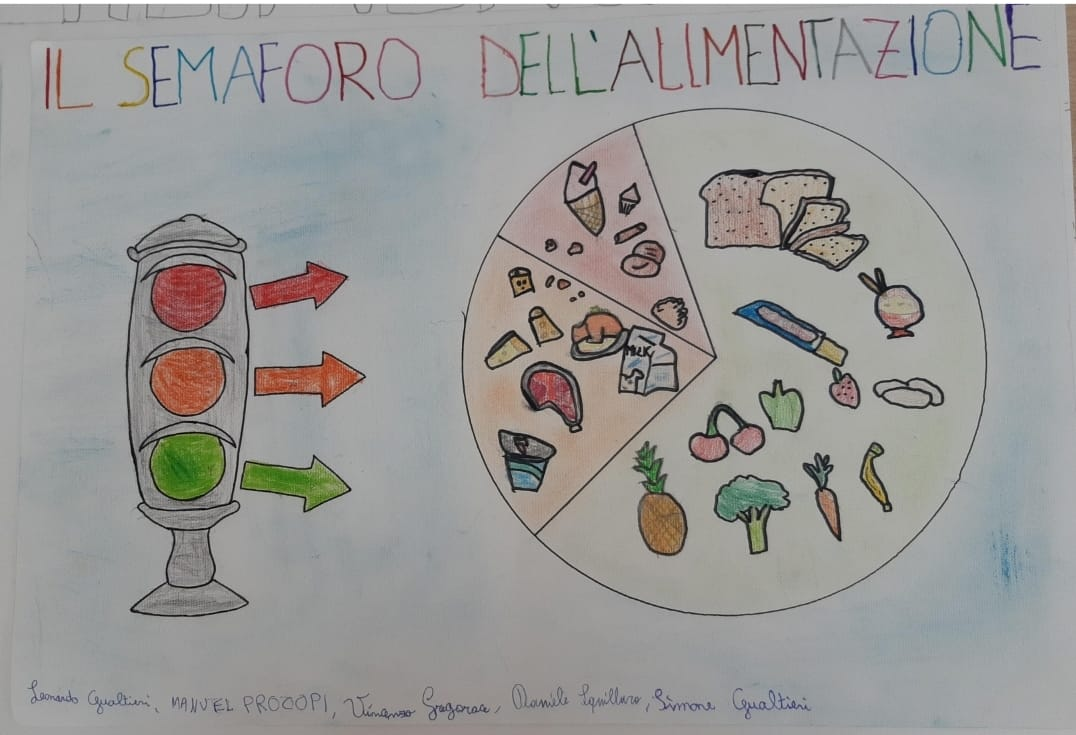 IL SEMAFORO DELL'ALIMENTAZIONE
MILK
Leonardo Gualtieri, MANUEL PROCOPI, Gregorace, Daniele Squillaro, Simone Gualtieri